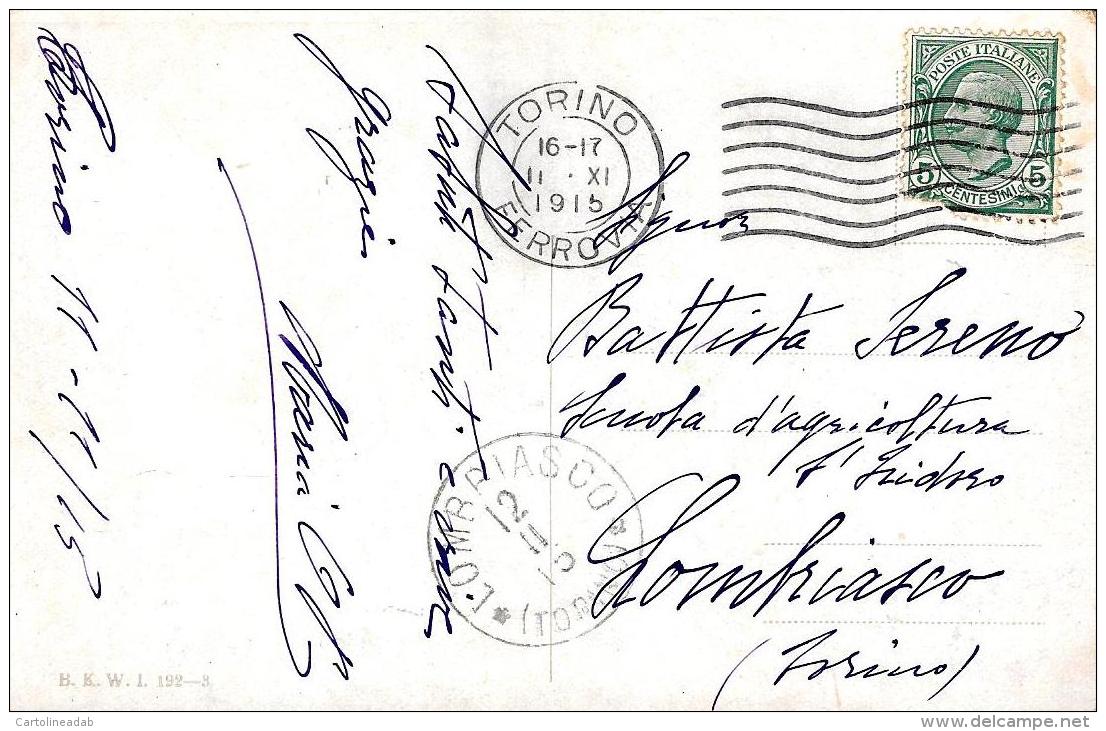 Torino 11-11/15
Grazie
Maria
Saluti tanti e
TORINO
16-17
11 · XI
1915
FERROVIA
POSTE ITALIANE
5 CENTESIMI 5
Signor
Battista Sereno
Scuola d'agricoltura
S. Isidoro
Lombriasco
(Torino)
LOMBRIASCO
12-11-15
(TORINO)
B. K. W. I. 192-3
Cartolineadab
www.delcampe.net